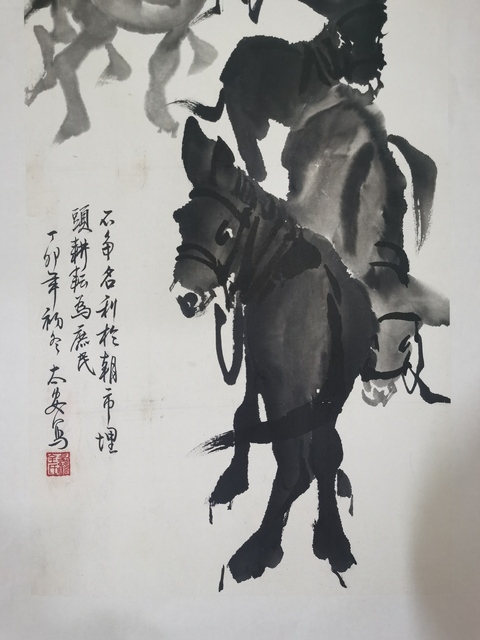 不争名利於朝市埋
頭耕耘為庶民
丁卯年初冬太安寫